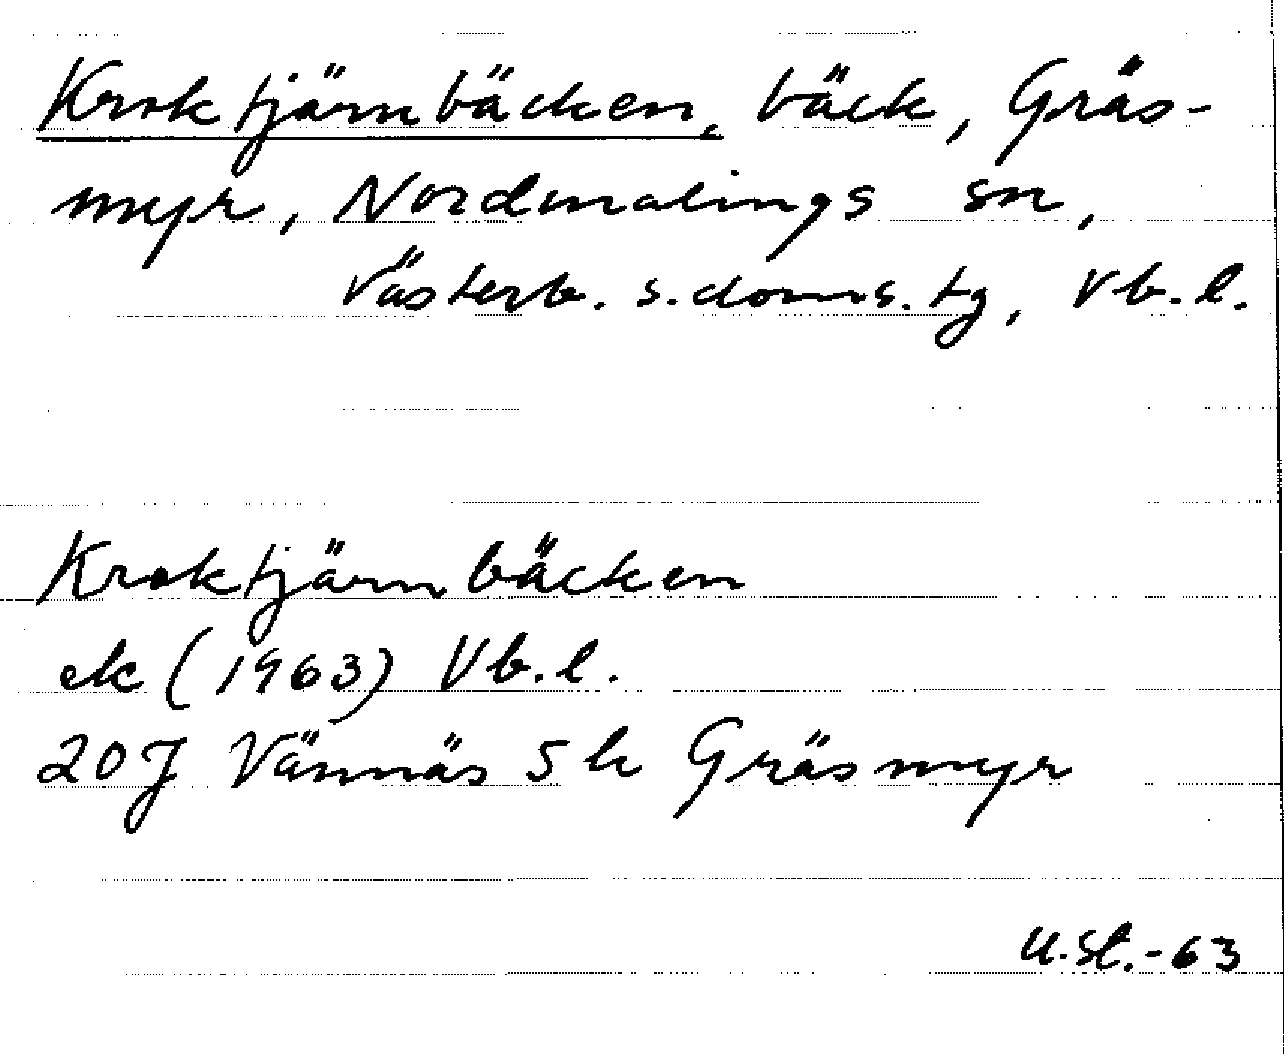 Kroktjärnbäcken, bäck, Gräs-
myr, Nordmalings sn,
Västerb. s. doms. tg, Vb. l.
Kroktjärnbäcken
ek (1963) Vb. l.
20 J Vännäs 5 h Gräsmyr
U.St.-63